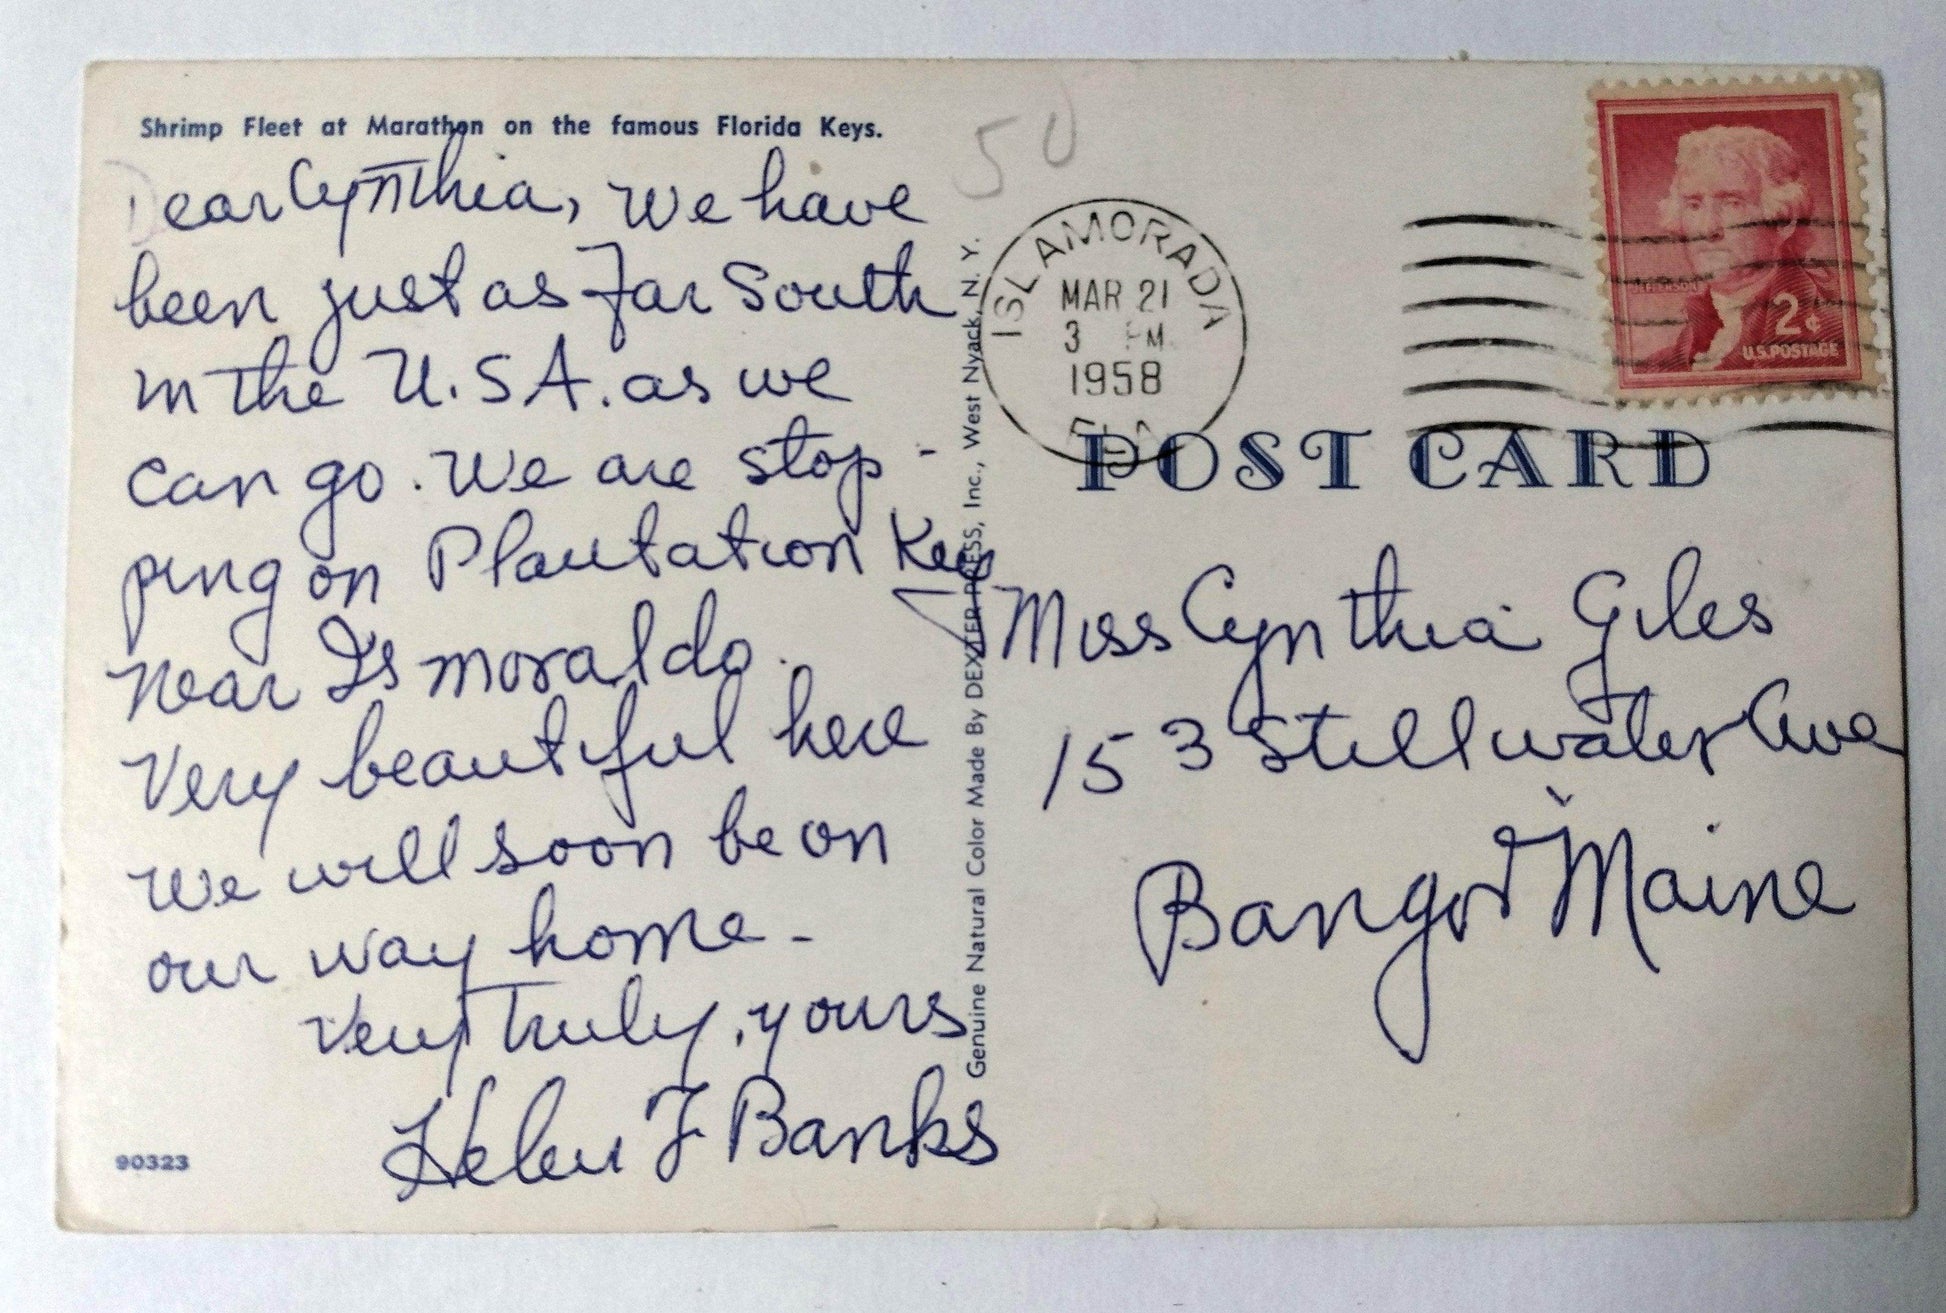 Shrimp Fleet at Marathon on the famous Florida Keys.
Dear Cynthia, We have
been just as Far South
in the U.S.A. as we
can go. We are stop-
ping on Plantation Key
near Ismoraldo.
Very beautiful here
We will soon be on
our way home-
Very Truly, yours
Helen F Banks
90323
Genuine Natural Color Made By DEXTER PRESS, Inc., West Nyack, N. Y.
50
ISLAMORADA
MAR 21
3 PM
1958
FLA
2¢
U.S. POSTAGE
POST CARD
Miss Cynthia Giles
153 Stillwater Ave
Bangor Maine